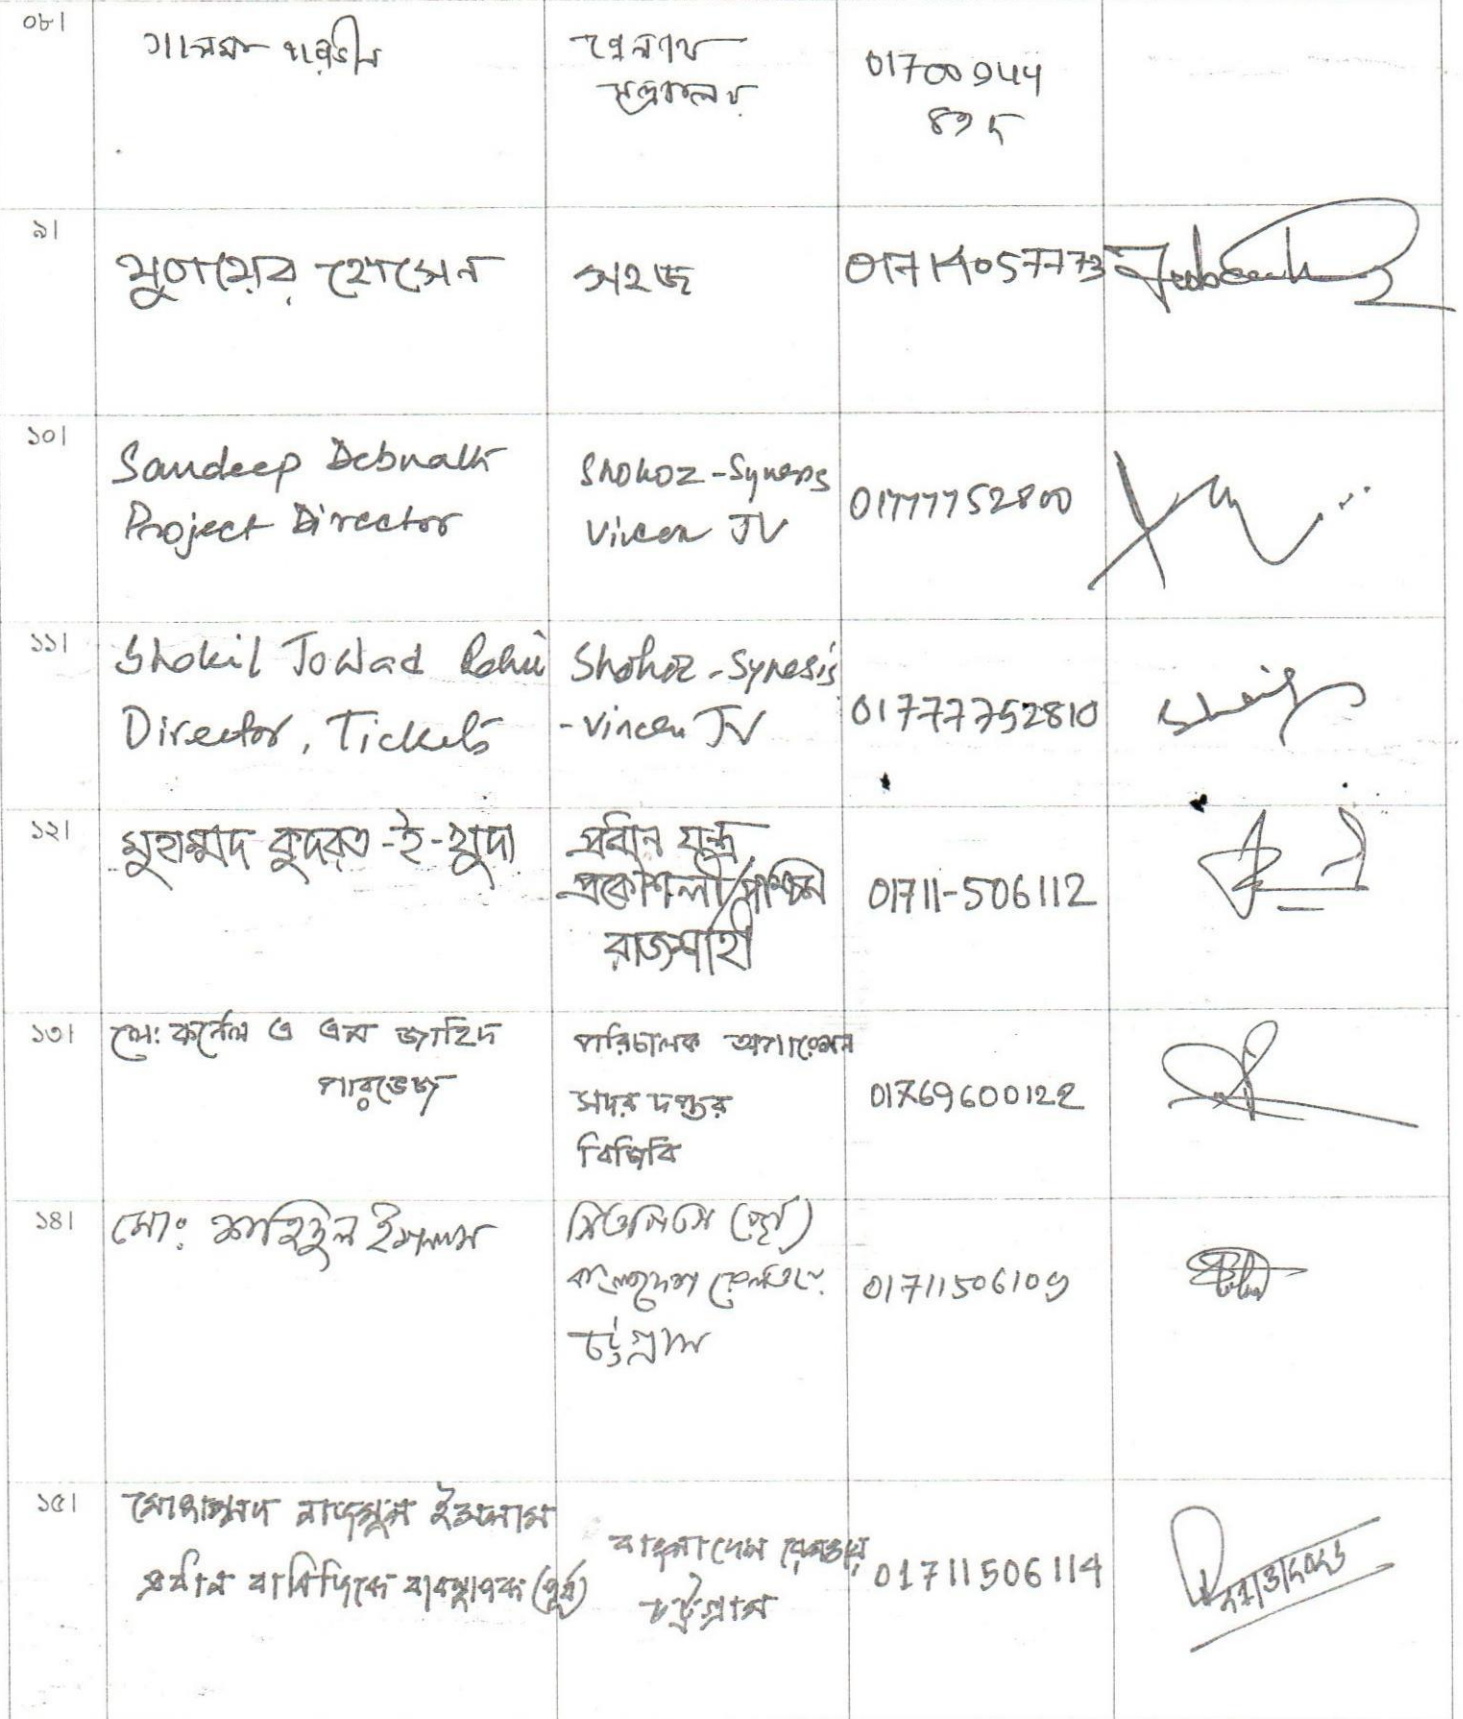 ০৮।
সালমা পারভীন
রেলপথ
মন্ত্রণালয়
01700
৯।
যুবায়ের হোসেন
সহজ
01714057773
১০।
Sandeep Debnath
Shohoz-Synesis
Project Director
Vincen JV
01777752800
১১।
Shakil Jowad Rahim
Shohoz-Synesis
Director, Tickets
-Vincen JV
01777752810
১২।
মুহাম্মদ কুদরত-ই-খুদা
প্রধান যন্ত্র
প্রকৌশলী/পশ্চিম
রাজশাহী
01711-506112
১৩।
লে: কর্নেল এ এম জাহিদ
পারভেজ
পরিচালক অপারেশন
সদর দপ্তর
বিজিবি
01769600122
১৪।
মো: শহিদুল ইসলাম
সিওপিএস (পূর্ব)
বাংলাদেশ রেলওয়ে
চট্টগ্রাম
01711506109
১৫।
মোহাম্মদ নাজমুল ইসলাম
প্রধান বাণিজ্যিক ব্যবস্থাপক (পূর্ব)
বাংলাদেশ রেলওয়ে
চট্টগ্রাম
01711506114